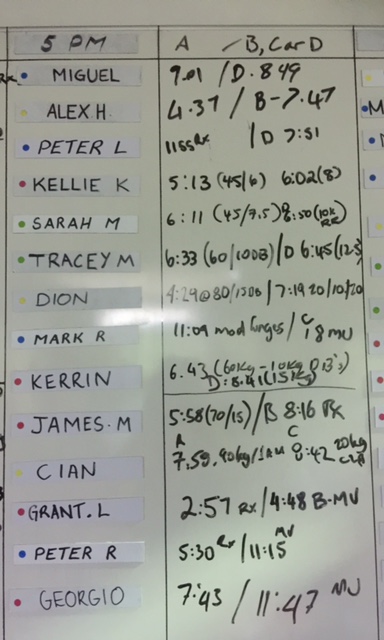 5 PM A / B, C or D
MIGUEL 9.01 / D. 8 49
ALEX H. 4.37 / B-7.47
PETER L 1155 Rx / D 7:51
KELLIE K 5:13 (45/6) 6:02(8)
SARAH M 6:11 (45/7.5) 8:50(10k
TRACEY M 6:33 (60/100B)/D 6:45(12.5)
DION 4:29@80/150B / 7:19 20/10/20
MARK R 11:09 mod lunges / C 18 MU
KERRIN 6.43 (60kg - 10kg D B's)
D: 8.41(15kg)
JAMES. M 5:58(70/15)/B 8:16 RX
A C
CIAN 7:59. 90kg/ 8:42 20kg
GRANT. L 2:57 Rx /4:48 B-MU
PETER R 5:30 Rx / 11:15 MU
GEORGIO 7:43 / 11:47 MU